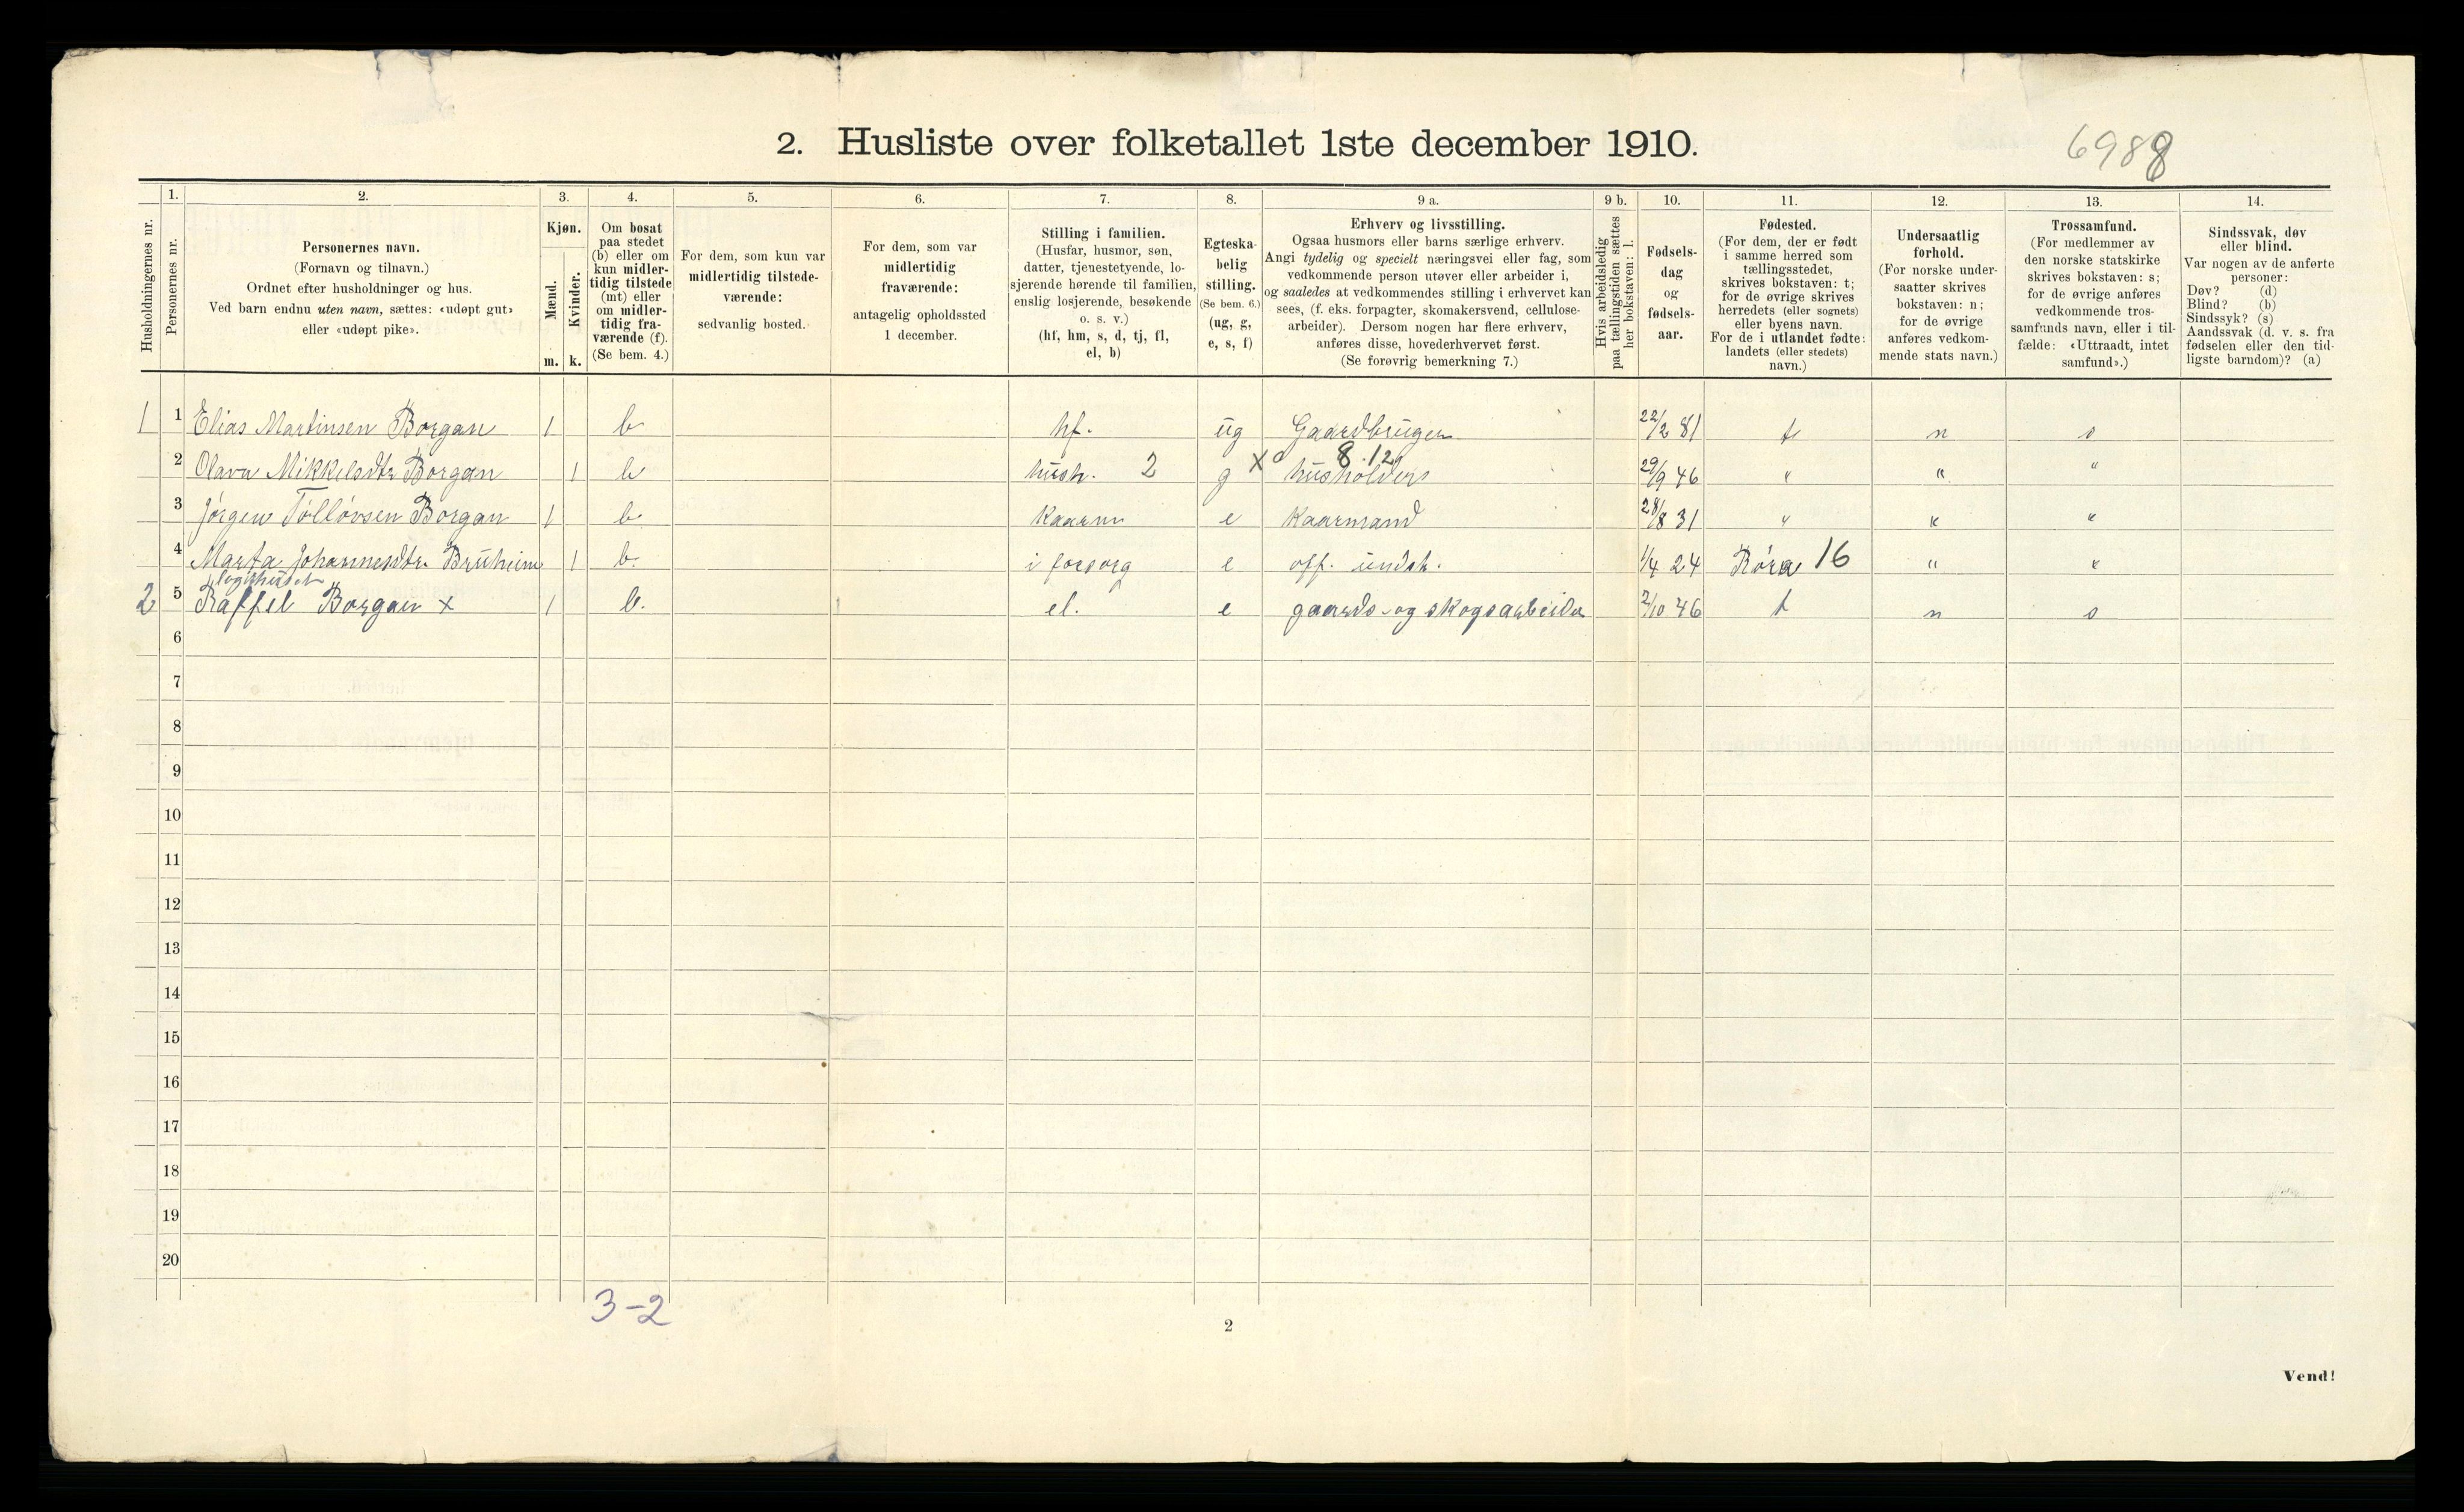 2. Husliste over folketallet 1ste december 1910.
6988
Husholdningernes nr.
1.
Personernes nr.
2.
Personernes navn.
(Fornavn og tilnavn.)
Ordnet efter husholdninger og hus.
Ved barn endnu uten navn, sættes: «udøpt gut»
eller «udøpt pike».
3.
Kjøn.
Mænd.
Kvinder.
m. k.
4.
Om bosat
paa stedet
(b) eller om
kun midler-
tidig tilstede
(mt) eller
om midler-
tidig fra-
værende (f).
(Se bem. 4.)
5.
For dem, som kun var
midlertidig tilstede-
værende:
sedvanlig bosted.
6.
For dem, som var
midlertidig
fraværende:
antagelig opholdssted
1 december.
7.
Stilling i familien.
(Husfar, husmor, søn,
datter, tjenestetyende, lo-
sjerende hørende til familien,
enslig losjerende, besøkende
o. s. v.)
(hf, hm, s, d, tj, fl,
el, b)
8.
Egteska-
belig
stilling.
(Se bem. 6.)
(ug, g,
e, s, f)
9 a.
Erhverv og livsstilling.
Ogsaa husmors eller barns særlige erhverv.
Angi tydelig og specielt næringsvei eller fag, som
vedkommende person utøver eller arbeider i,
og saaledes at vedkommendes stilling i erhvervet kan
sees, (f. eks. forpagter, skomakersvend, cellulose-
arbeider). Dersom nogen har flere erhverv,
anføres disse, hovederhvervet først.
(Se forøvrig bemerkning 7.)
9 b.
Hvis arbeidsledig
paa tællingstiden sættes
her bokstaven: l.
10.
Fødsels-
dag
og
fødsels-
aar.
11.
Fødested.
(For dem, der er født
i samme herred som
tællingsstedet,
skrives bokstaven: t;
for de øvrige skrives
herredets (eller sognets)
eller byens navn.
For de i utlandet fødte:
landets (eller stedets)
navn.)
12.
Undersaatlig
forhold.
(For norske under-
saatter skrives
bokstaven: n;
for de øvrige
anføres vedkom-
mende stats navn.)
13.
Trossamfund.
(For medlemmer av
den norske statskirke
skrives bokstaven: s;
for de øvrige anføres
vedkommende tros-
samfunds navn, eller i til-
fælde: «Uttraadt, intet
samfund».)
14.
Sindssvak, døv
eller blind.
Var nogen av de anførte
personer:
Døv? (d)
Blind? (b)
Sindssyk? (s)
Aandssvak (d. v. s. fra
fødselen eller den tid-
ligste barndom)? (a)
1 1 Elias Martinsen Borgan 1 b hf. ug Gaardbruger 22/2 81 t n s
8.12
2 Olava Mikkelsdtr Borgan 1 b hush. 2 g x husholders 29/9 46 " " "
3 Jørgen Tølløvsen Borgan 1 b. Kaarm e Kaarmand 28/8 31 " " "
4 Marta Johannesdtr. Bruheim 1 b. i forsorg e off. undst. 1/4 24 Røra 16 " "
2 5 Raffel Borgan x 1 b. el. e gaards- og skogsarbeider 2/10 46 t n s
6
7
8
9
10
11
12
13
14
15
16
17
18
19
20
3-2
2
Vend!